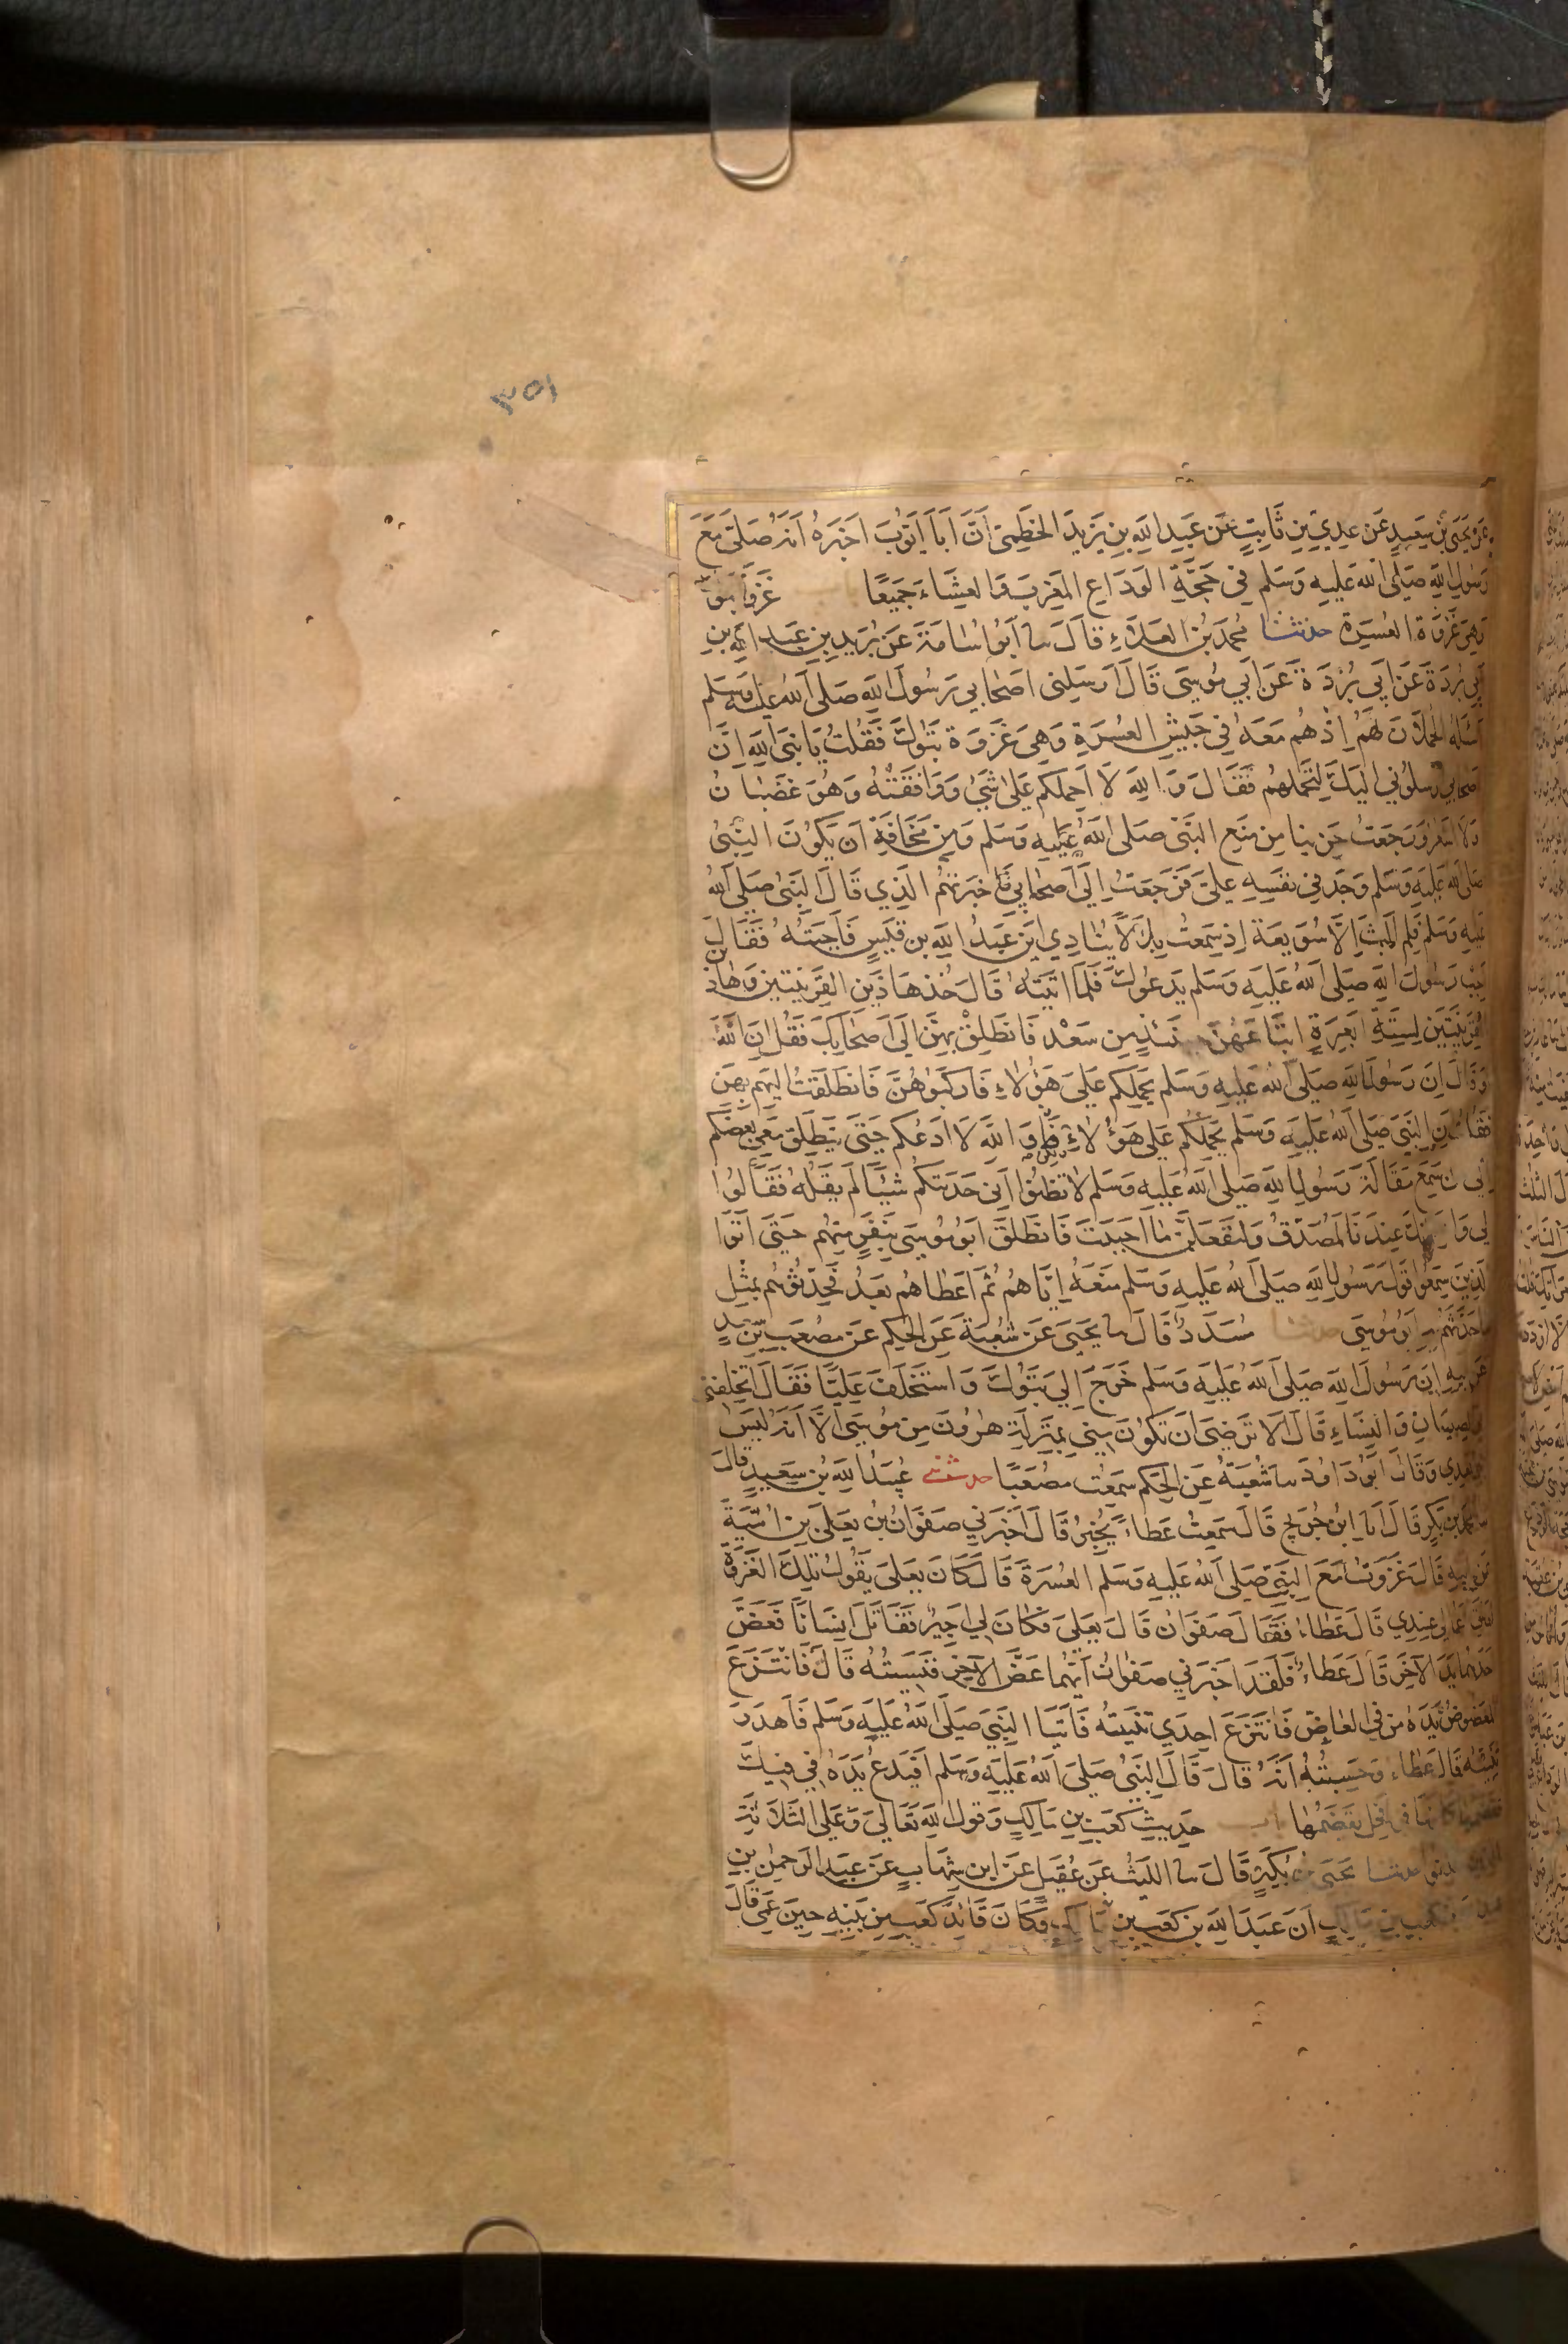 ٣٥١
عن يحيى بن سعيد عن عدي بن ثابت عن عبد الله بن يزيد الخطمي ان ابا ايوب اخبره انه صلى مع
رسول الله صلى الله عليه وسلم في حجة الوداع المغرب والعشاء جميعا غزوة تبوك
وهي غزوة العسرة حدثنا محمد بن العلاء قال ثنا ابو اسامة عن بريد بن عبد الله بن
ابي بردة عن ابي بردة عن ابي موسى قال ارسلني اصحابي رسول الله صلى الله عليه وسلم
اسئله الحملان لهم اذ هم معه في جيش العسرة وهي غزوة تبوك فقلت يا نبي الله ان
اصحابي ارسلوني اليك لتحملهم فقال والله لا احملكم على شئ ووافقته وهو غضبان
ولا اشعر ورجعت حزينا من منع النبي صلى الله عليه وسلم ومن مخافة ان يكون النبي
صلى الله عليه وسلم وجد في نفسه علي فرجعت الى اصحابي فاخبرتهم الذي قال النبي صلى الله
عليه وسلم فلم البث الا سويعة اذ سمعت بلالا ينادي اين عبد الله بن قيس فاجبته فقال
اجب رسول الله صلى الله عليه وسلم يدعوك فلما اتيته قال خذ هاذين القرينتين وهاذين
القرينتين لستة ابعرة ابتاعهن من سعد فانطلق بهن الى اصحابك فقل ان الله
او قال ان رسول الله صلى الله عليه وسلم يحملكم على هؤلاء فاركبوهن فانطلقت اليهم بهن
فقلت ان النبي صلى الله عليه وسلم يحملكم على هؤلاء ولكني والله لا ادعكم حتى ينطلق معي بعضكم
الى من سمع مقالة رسول الله صلى الله عليه وسلم لا تظنوا اني حدثتكم شيئا لم يقله فقالوا
لي والله انك عندنا لمصدق ولنفعلن ما احببت فانطلق ابو موسى بنفر منهم حتى اتوا
الذين سمعوا قول رسول الله صلى الله عليه وسلم منعه اياهم ثم اعطاهم بعد فحدثوهم بمثل
ما حدثهم به ابو موسى حدثنا مسدد قال ثنا يحيى عن شعبة عن الحكم عن مصعب بن سعد
عن ابيه ان رسول الله صلى الله عليه وسلم خرج الى تبوك واستخلف عليا فقال اتخلفني
في الصبيان والنساء قال الا ترضى ان تكون مني بمنزلة هرون من موسى الا انه ليس
نبي بعدي وقال ابو داود ثنا شعبة عن الحكم سمعت مصعبا حدثني عبيد الله بن سعيد قال
ثنا محمد بن بكر قال انا ابن جريج قال سمعت عطاء يخبر قال اخبرني صفوان بن يعلى بن امية
عن ابيه قال غزوت مع النبي صلى الله عليه وسلم العسرة قال كان يعلى يقول تلك الغزوة
اوثق اعمالي عندي قال عطاء فقال صفوان قال يعلى فكان لي اجير فقاتل انسانا فعض
احدهما يد الآخر قال عطاء فلقد اخبرني صفوان ايهما عض الآخر فنسيته قال فانتزع
المعضوض يده من في العاض فانتزع احدى ثنيته فاتيا النبي صلى الله عليه وسلم فاهدر
ثنيته قال عطاء وحسبته انه قال قال النبي صلى الله عليه وسلم افيدع يده في فيك
تقضمها كانها في في فحل يقضمها باب حديث كعب بن مالك وقول الله تعالى وعلى الثلاثة
الذين خلفوا حدثنا يحيى بن بكير قال ثنا الليث عن عقيل عن ابن شهاب عن عبد الرحمن بن
عبد الله بن كعب بن مالك ان عبد الله بن كعب بن مالك وكان قائد كعب من بنيه حين عمي قال